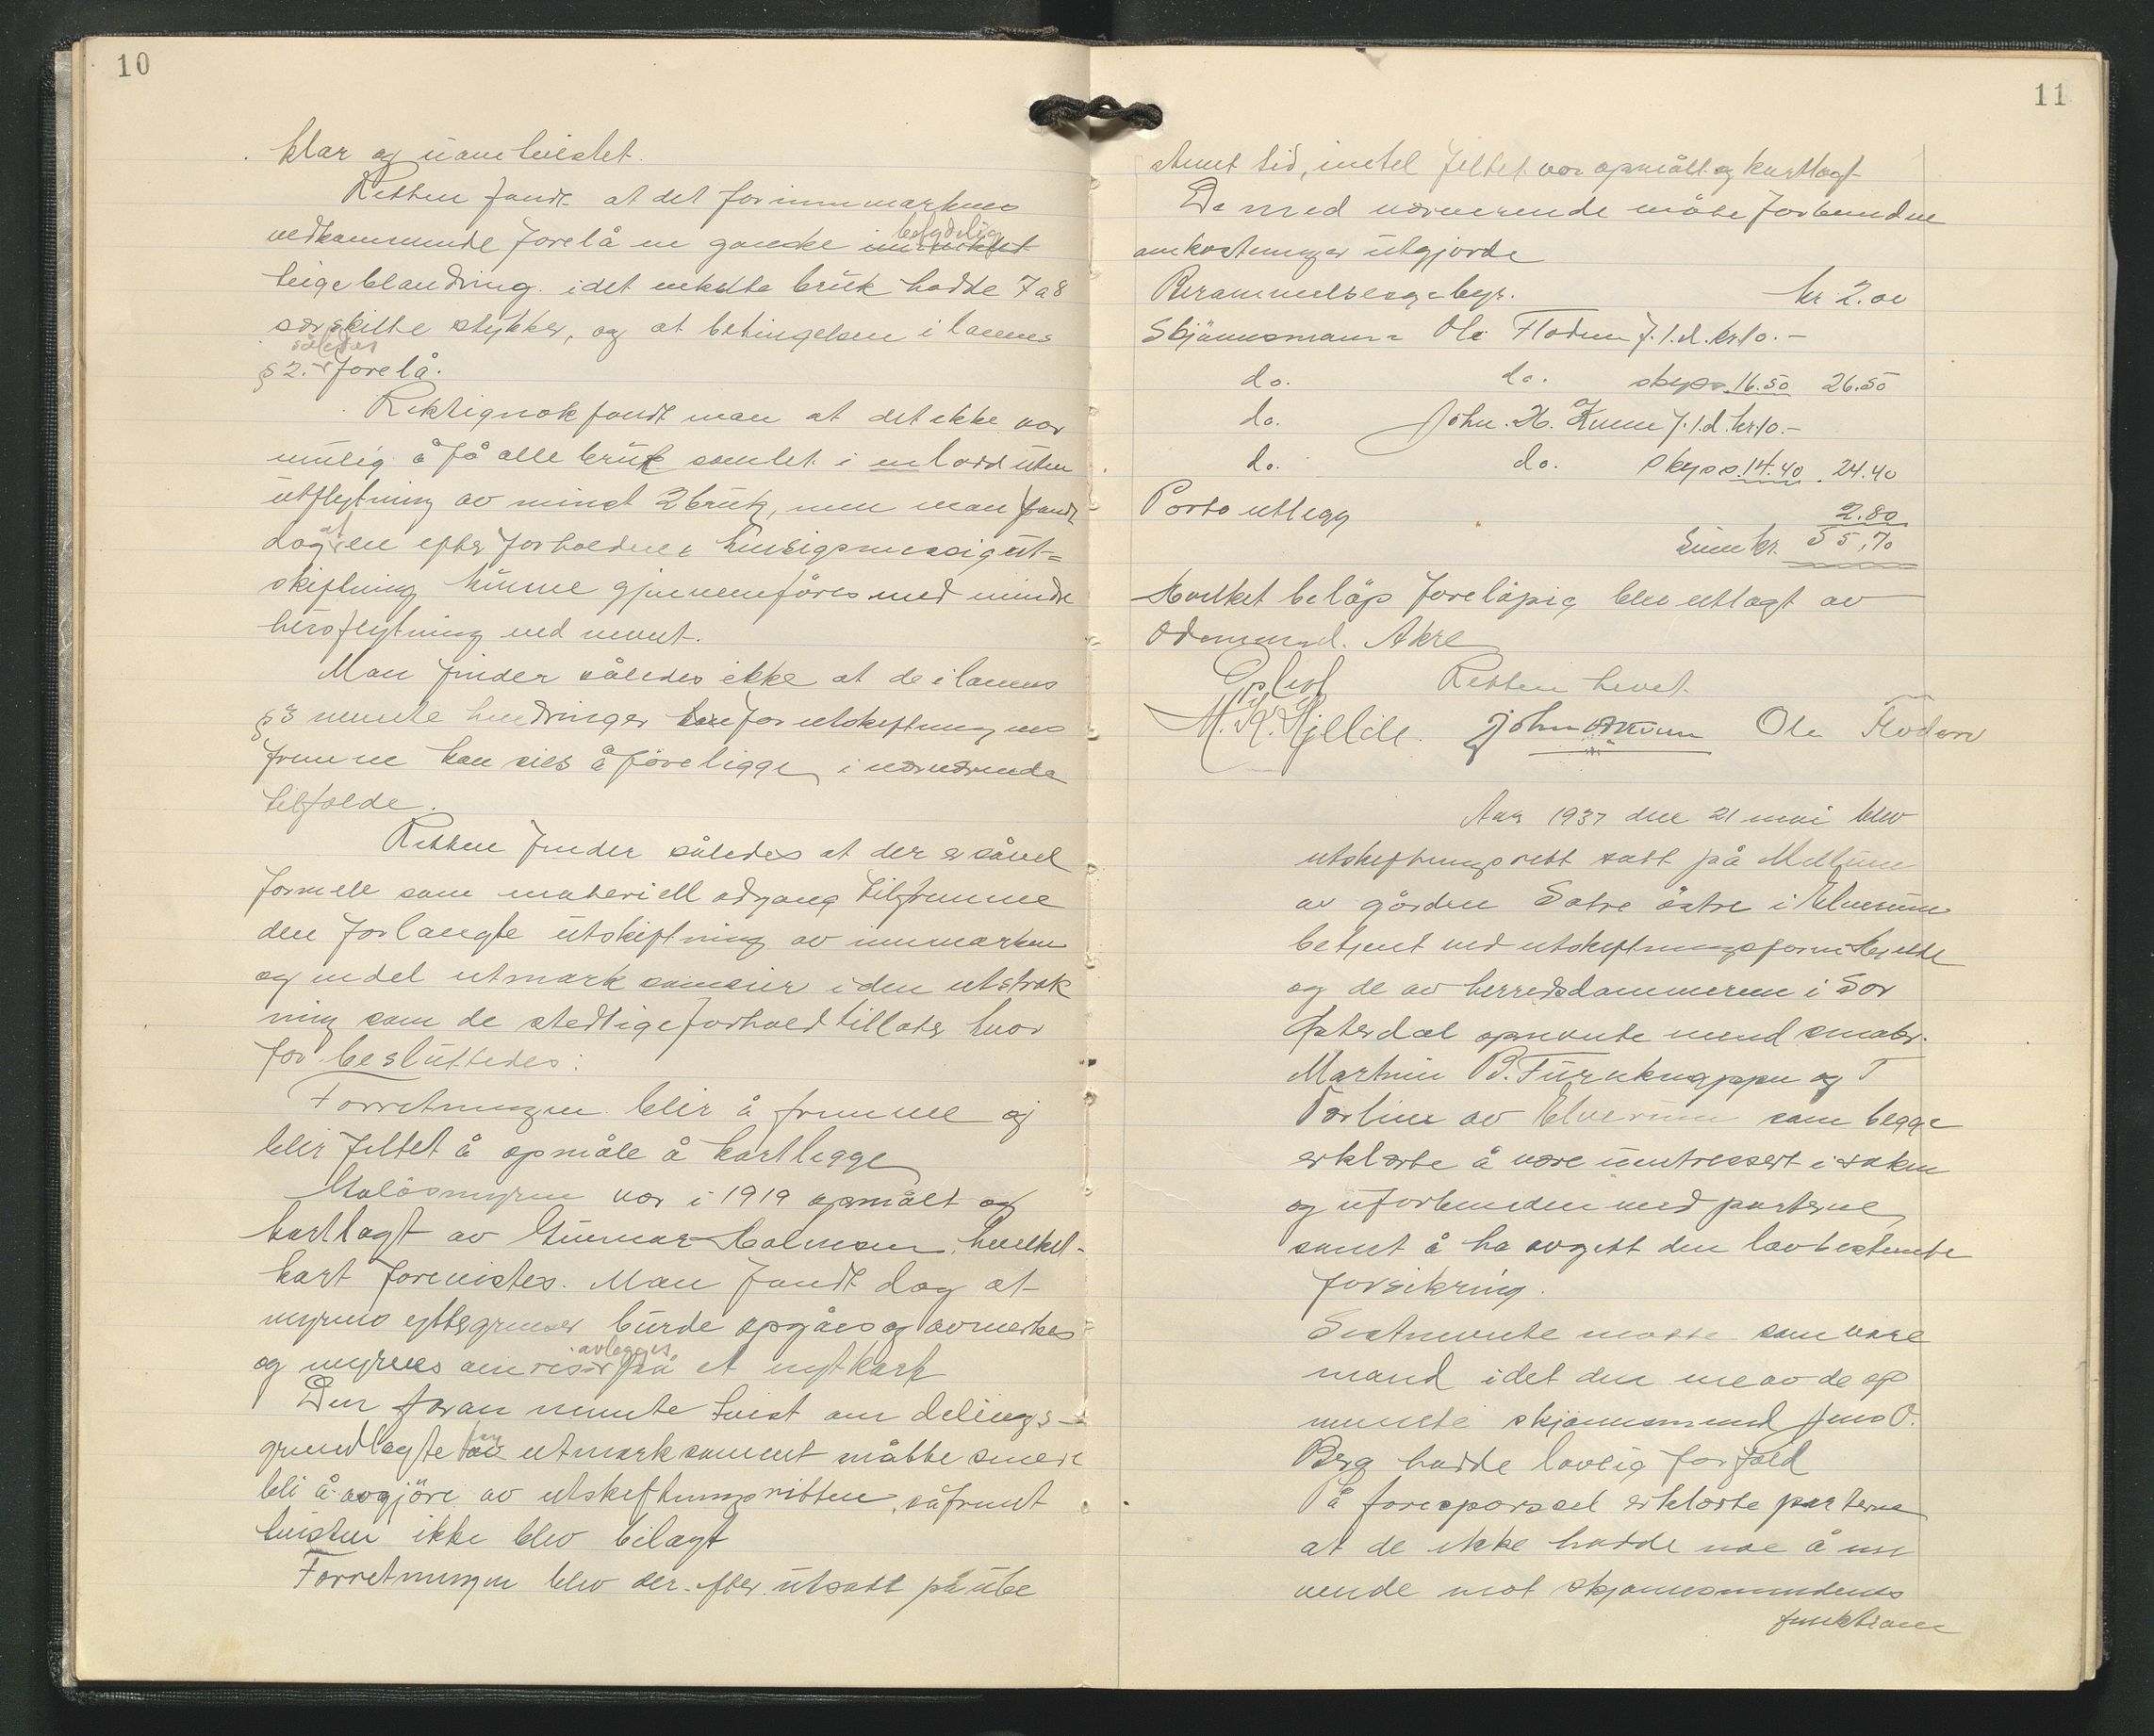 10
klar og uomtvistet.
Retten fandt at det for innmarkens
betydelig
vedkommende forelå en ganske
teigeblandning idet enkelte bruk hadde 7 a 8
særskilte stykker, og at betingelsen i lovens
således
§ 2. forelå.
Riktignok fandt man at det ikke var
mulig å få alle bruk samlet i en lodd uten
utflytning av minst 2 bruk, men man fandt
at
dog en efter forholdene hensigsmessig ut=
skiftning kunne gjennemføres med mindre
husflytning ved nevnt.
Man finder således ikke at de i lovens
§ 3 nevnte hindringer for utskiftningens
fremme kan sies å foreligge i nærværende
tilfælde.
Retten finder således at der er såvel
formell som materiell adgang til fremme
den forlangte utskiftning av innmarken
og endel utmark sameier i den utstræk
ning som de stedlige forhold tillater hvor
for besluttedes:
Forretningen blir å fremme og
blir feltet å opmåle å kartlegge
Måløsmyren var i 1919 opmålt og
kartlagt av Gunnar Holmsen, hvilket
kart forevistes. Man fandt dog at
myrens yttergrenser burde opgåes og avmerkes
avlegges
og myrens omriss på et nyt kart
Den foran nevnte tvist om delings-
for
grundlagte utmarksameiet måtte
bli å avgjöre av utskiftningsretten, såfremt
tvisten ikke blev bilagt
Forretningen blev der-efter utsatt på ube
11
stemt tid, inntil feltet var opmålt og kartlagt
De med nærværende möte forbundne
omkostninger utgjorde
Berammelsesgebyr. kr 2.00
Skjønnsmann Ole Floden f. 1. d. kr. 10.-
do. do. skyss 16.50 26.50
do. John. H. Kunn f. 1. d. kr. 10.-
do. do. skyss. 14.40 24.40
Porto utlegg 2.80
Sum kr. 55,70
Hvilket beløp foreløpig blev utlagt av
Odmund. Akre
Oplest Retten hevet.
M. K. Hjelde. John Ole Floden
Aar 1937 den 21 mai blev
utskiftningsrett satt på
av gården Sätre östre i Elverum
betjent ved utskiftningsform Hjelde
og de av herredsdommeren i Sør
Østerdal opnevnte menn småbr.
Martin B. Furuknappen og T
av Elverum som begge
erklærte å være uintressert i saken
og uforbunden med parterne
samt å ha avgitt den lovbestemte
forsikring.
Sistnevnte møtte som vare
mand idet den ene av de op
nevnte skjønnsmend Jens O.
Berg hadde lovlig forfald
På forespørsel erklærte parterne
at de ikke hadde noe å inn
vende mot skjønnsmendenes
funktion